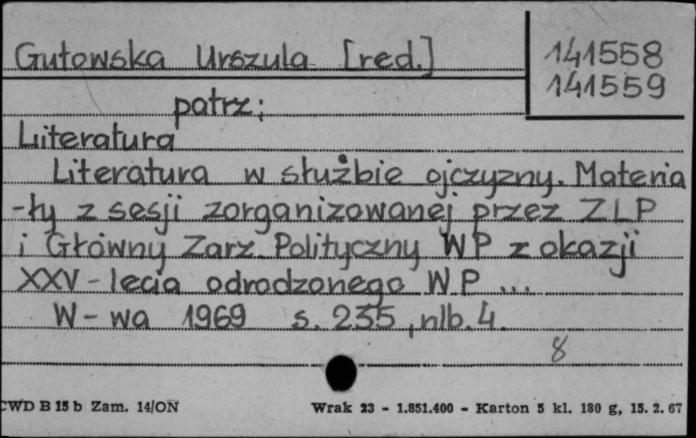 Gutowska Urszula [red.]
141558
141559
patrz:
Literatura
Literatura w służbie ojczyzny. Materia
-ły z sesji zorganizowanej przez ZLP
i Główny Zarz. Polityczny WP z okazji
XXV-lecia odrodzonego WP ...
W-wa 1969 s. 235, nlb. 4.
8
CWD B 15 b Zam. 14/ON Wrak 23 - 1.851.400 - Karton 5 kl. 180 g, 15. 2. 67